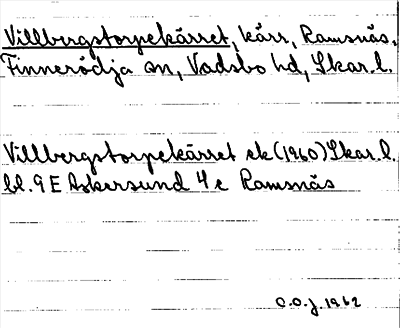 Villbergstorpekärret, kärr, Ramsnäs,
Finnerödja sn, Vadsbo hd, Skar. l.
Villbergstorpekärret ek (1960) Skar. l.
bl. 9 E Askersund 4 c Ramsnäs
O.O.J. 1962